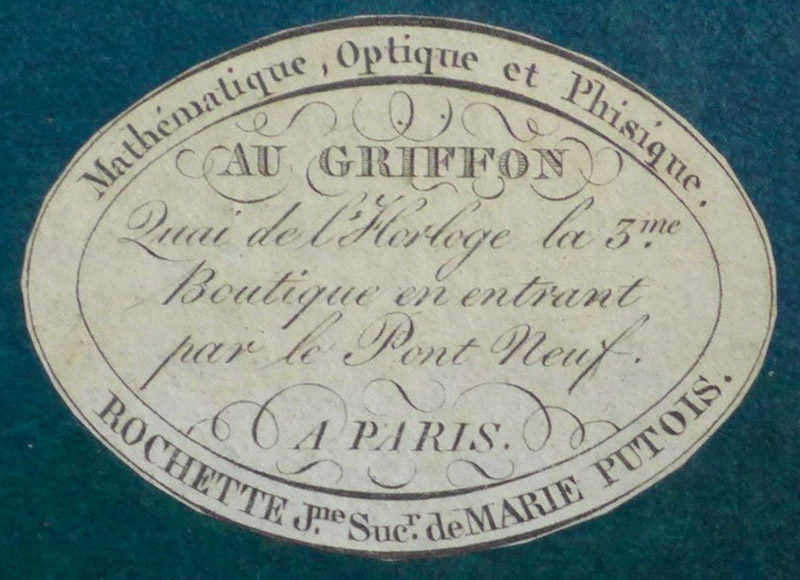 Mathématique, Optique et Phisique.
AU GRIFFON
Quai de l'Horloge la 3.me
Boutique en entrant
par le Pont Neuf.
A PARIS.
ROCHETTE J.ne Suc.r de MARIE PUTOIS.